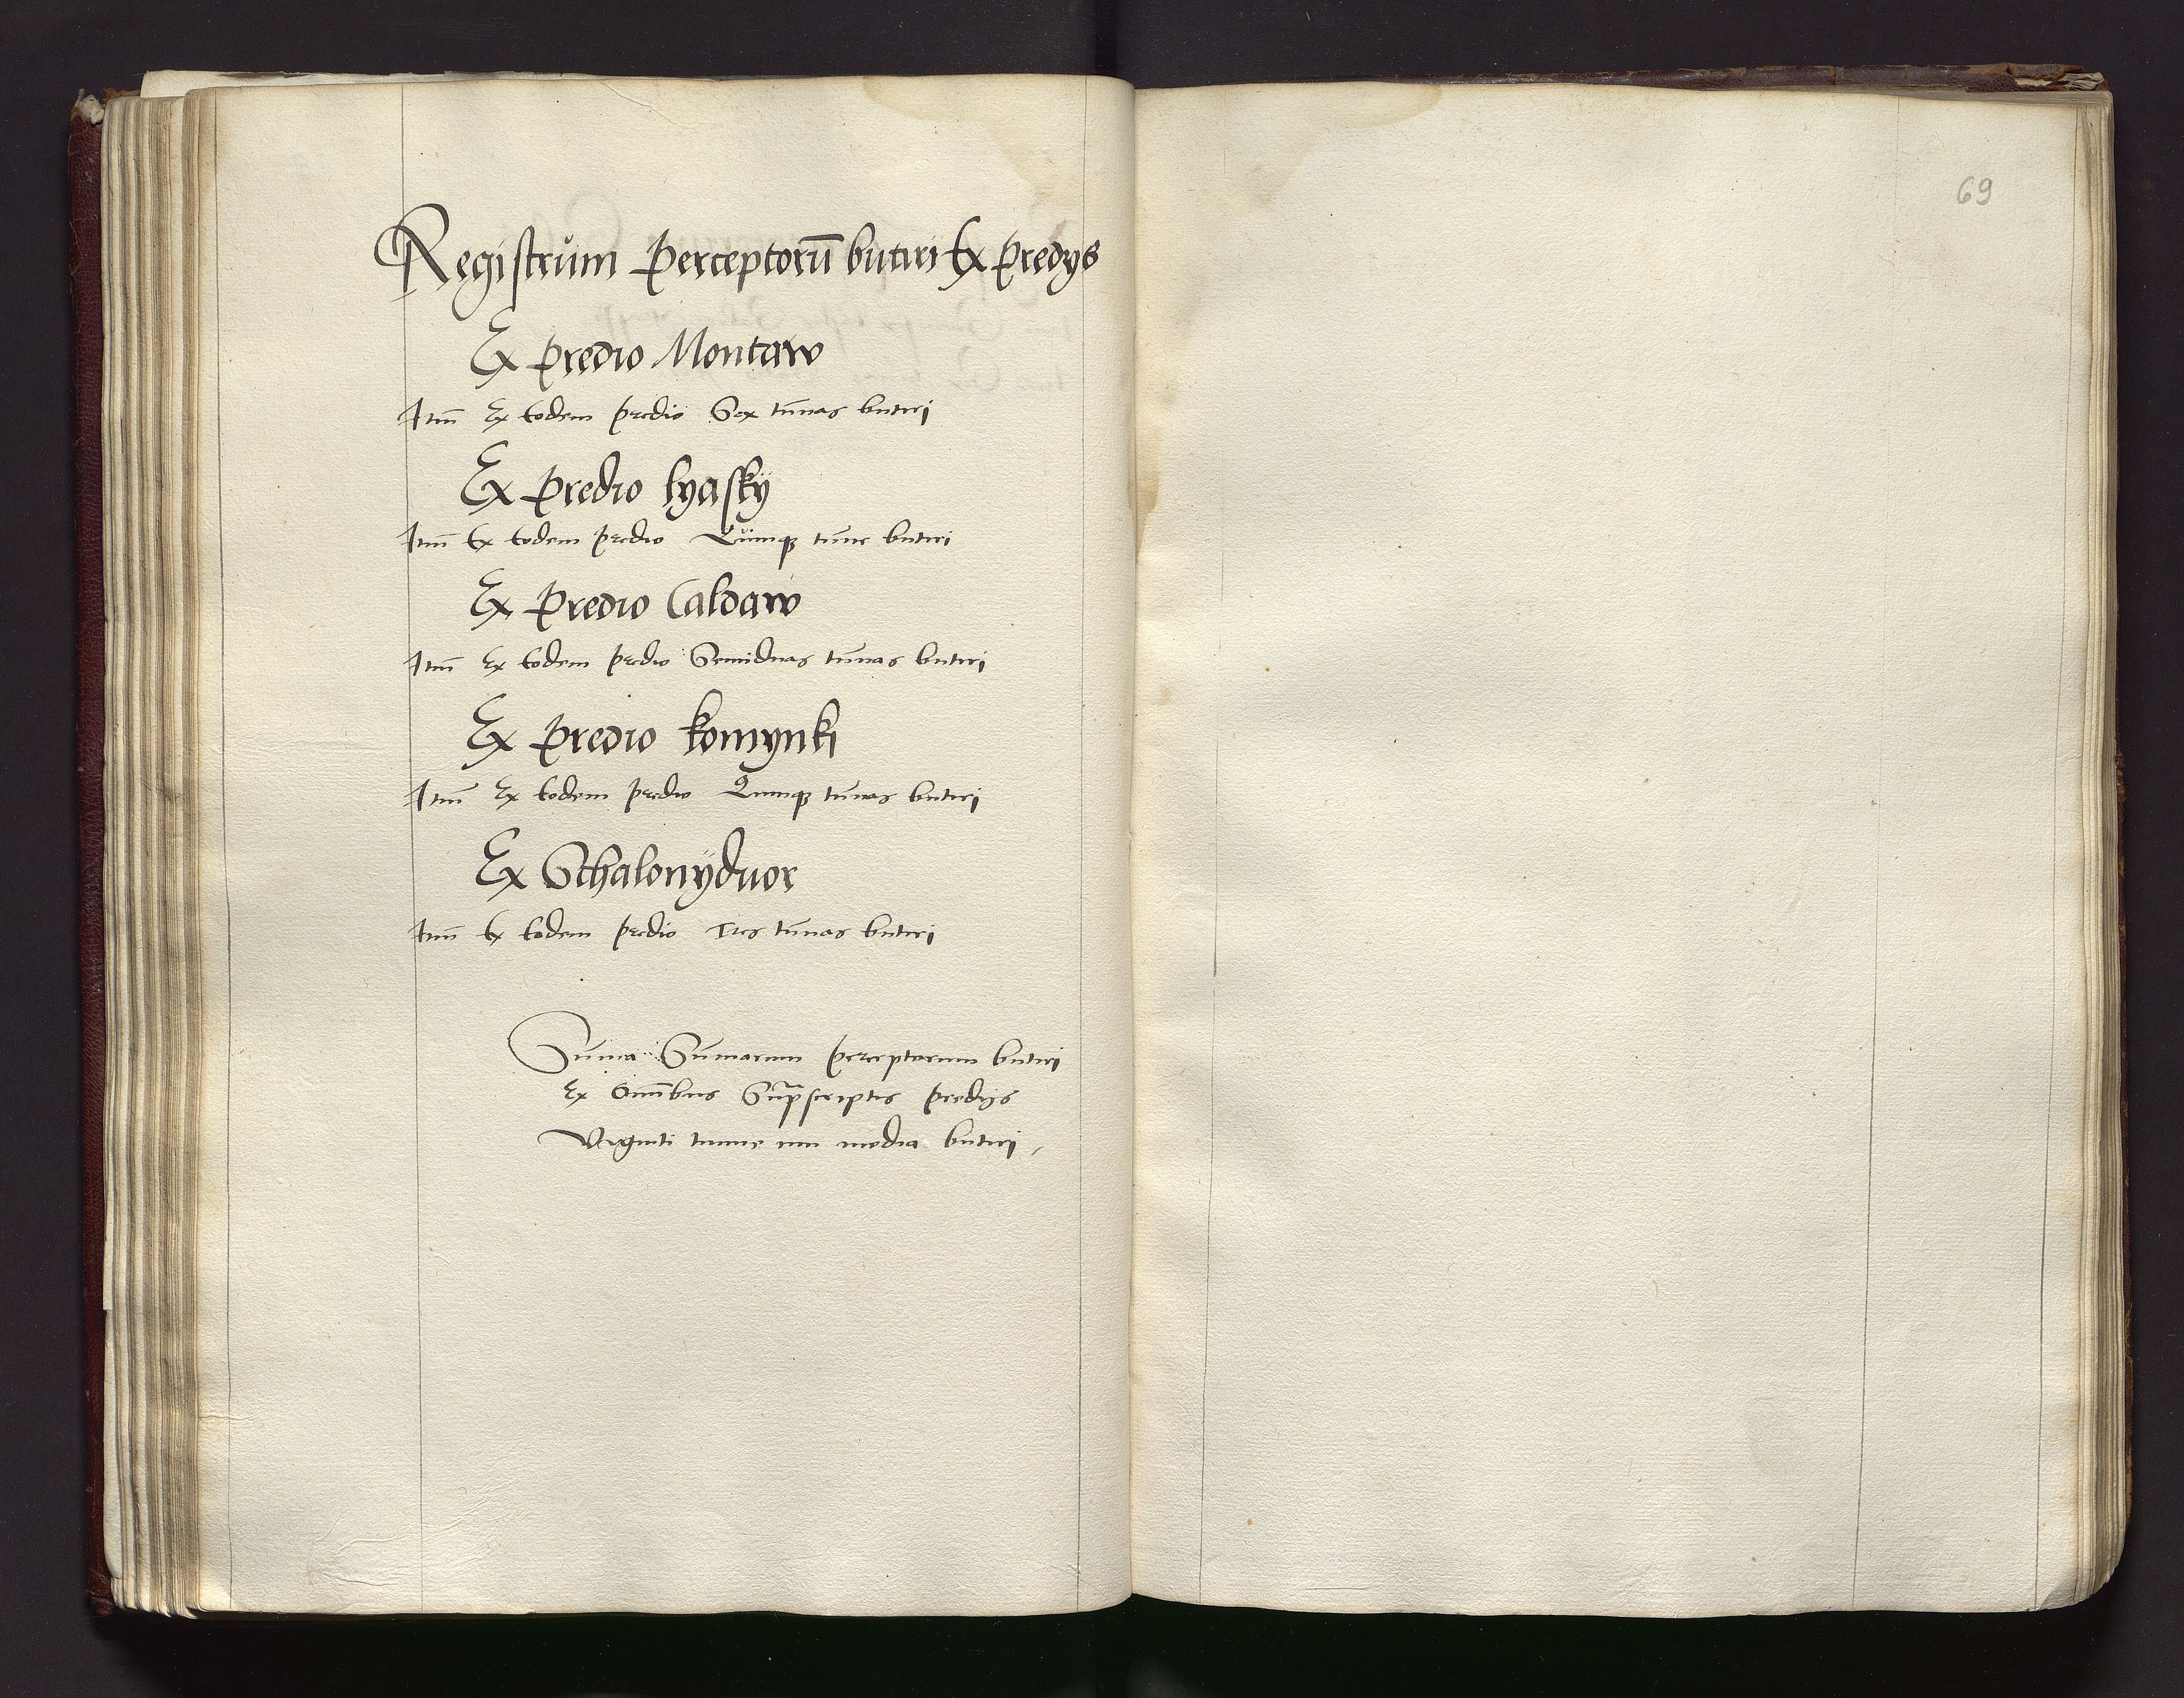 Registrum perceptorū butiri Ex predys
Ex predio Montaw
Itm̄ Ex eodem predio Sex tūnas butiri
Ex predio lyasky
Itm̄ Ex eodem predio Quinqȝ tūne butiri
Ex predio Caldaw
Itm̄ Ex eodem predio Semiduas tūnas butiri
Ex predio komynki
Itm̄ Ex eodem predio Quinqȝ tūnas butiri
Ex Schalonyduor
Itm̄ Ex eodem predio Tres tūnas butiri
Sūma Sūmarum perceptorum butiri
Ex Omībus Sup̄scriptis predys
Viginti tunne cum media butiri
69